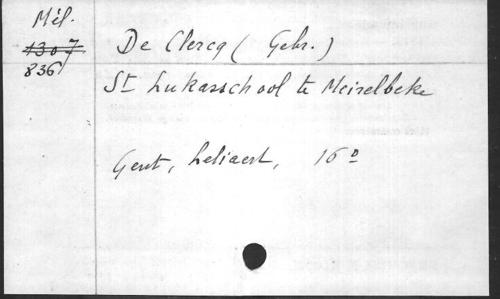 Mél.
1307
836
De Clercq (Gebr.)
St Lukasschool te Meirelbeke
Gent, Leliaert, 16º